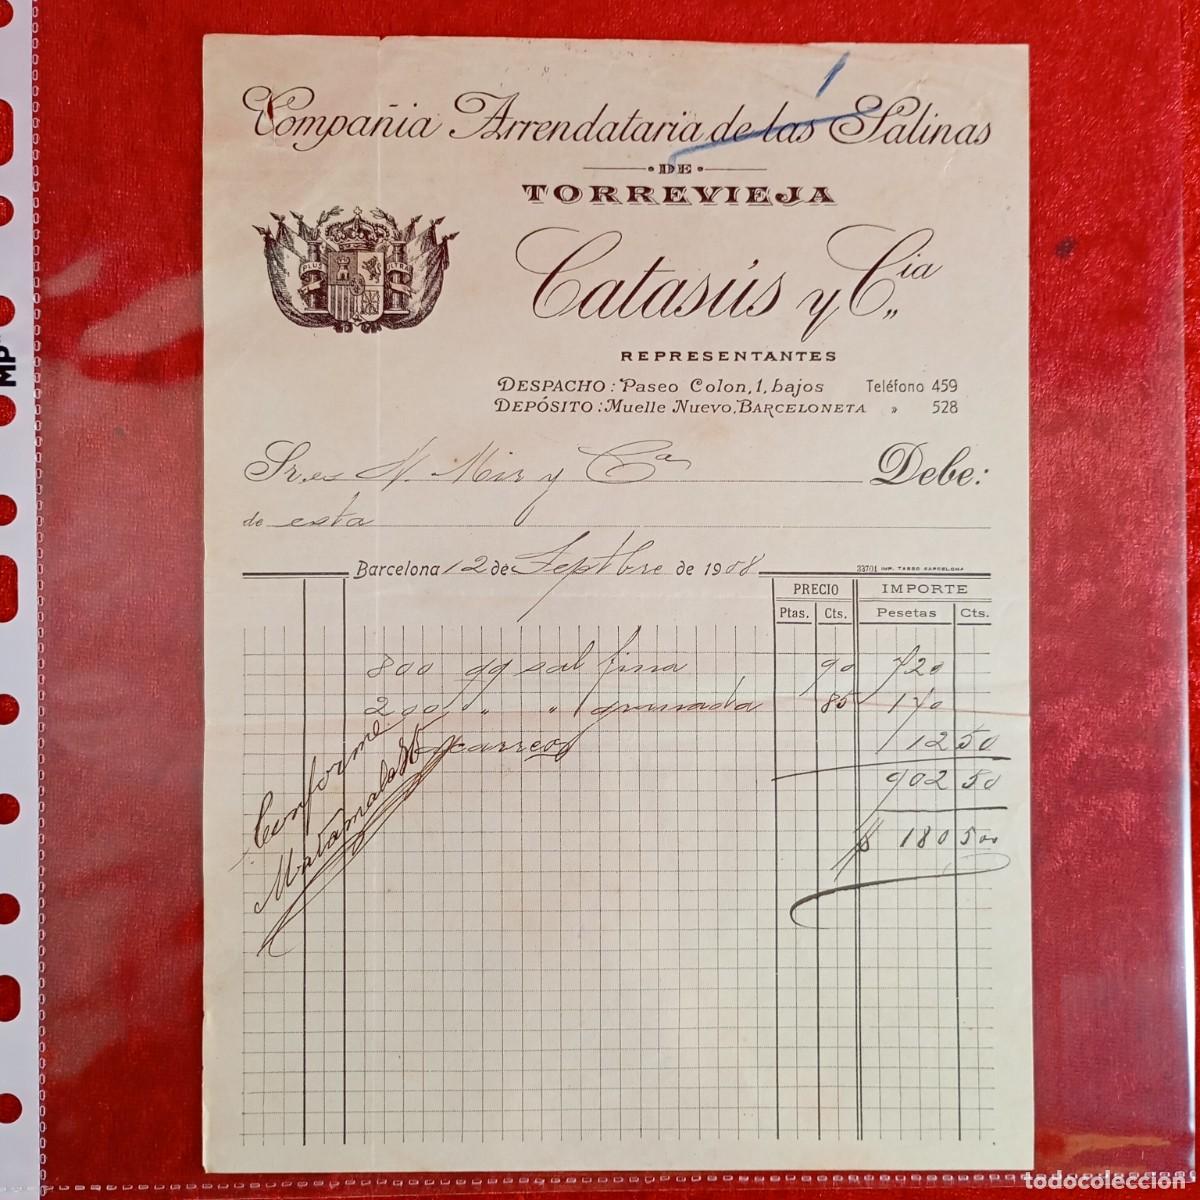 1
Compañia Arrendataria de las Salinas
DE
TORREVIEJA
PLUS ULTRA
Catasús y Cia
REPRESENTANTES
DESPACHO: Paseo Colon, 1, bajos Teléfono 459
DEPÓSITO: Muelle Nuevo, BARCELONETA » 528
Sr.es M. Mir y Ca Debe:
de esta
Barcelona 12 de Septbre de 1908
33701 IMP. TASSO BARCELONA
PRECIO IMPORTE
Ptas. Cts. Pesetas Cts.
800 qq sal fina 90 720
200 " " granada 85 170
acarreo 12 50
902 50
$ 180 500
Conforme
MP
todocoleccion